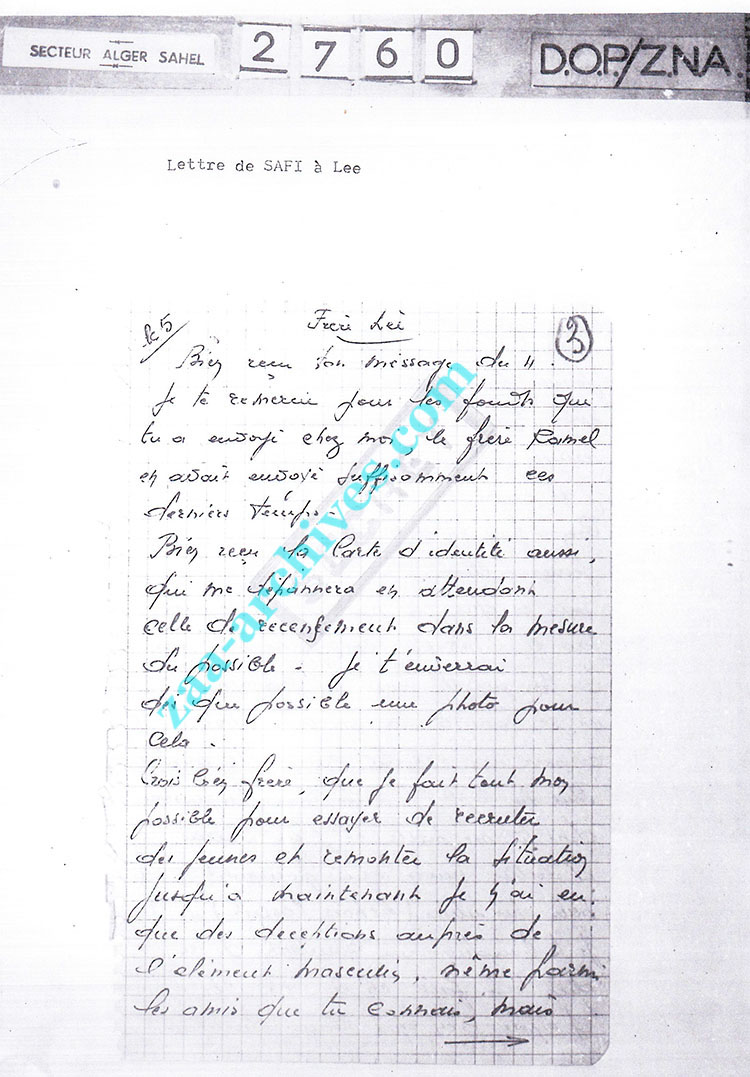 SECTEUR ALGER SAHEL
2760
D.O.P/Z.NA.
Lettre de SAFI à Lee
le 5
Frère Lee
3
Bien reçu ton message du 4.
Je te remercie pour les fonds que
tu a envoyé chez moi, le frère Kamel
en avait envoyé suffisamment ces
derniers temps.
Bien reçu la Carte d'identité aussi,
qui me dépannera en attendant
celle de recensement dans la mesure
du possible - Je t'enverrai
dès que possible une photo pour
cela.
Crois bien frère, que je fait tout mon
possible pour essayer de recruter
des jeunes et remonter la situation
jusqu'a maintenant je n'ai eu
que des deceptions auprès de
l'élément masculin, même parmi
les amis que tu connais, mais
zaa-archives.com